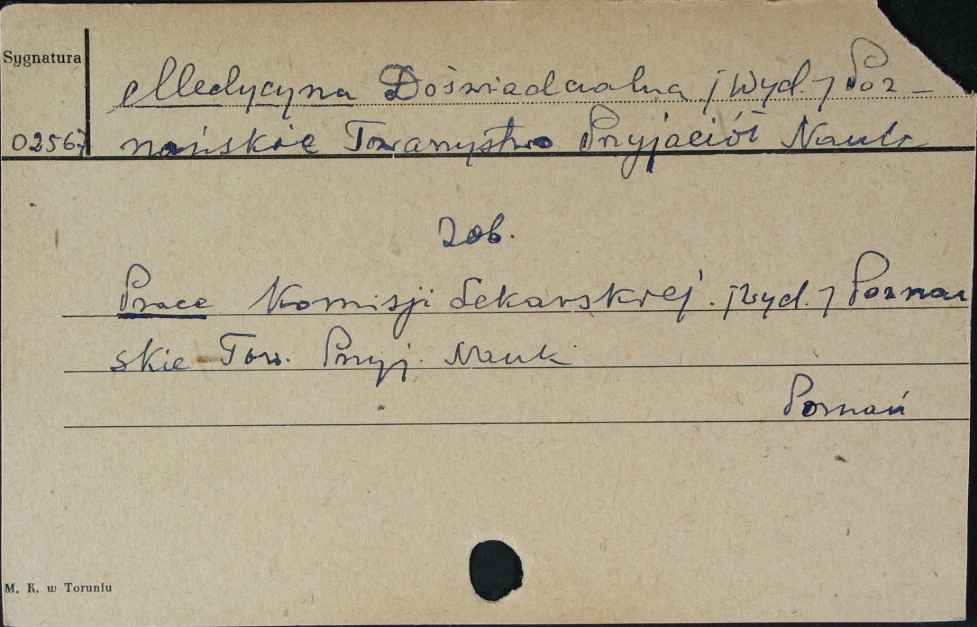 Sygnatura
Medycyna Doświadczalna /Wyd./ Poz-
02567 nańskie Towarzystwo Przyjaciół Nauk
Zob.
Prace Komisji Lekarskiej. /Wyd./ Poznań
skie Tow. Przyj. Nauk
Poznań
M. K. w Toruniu